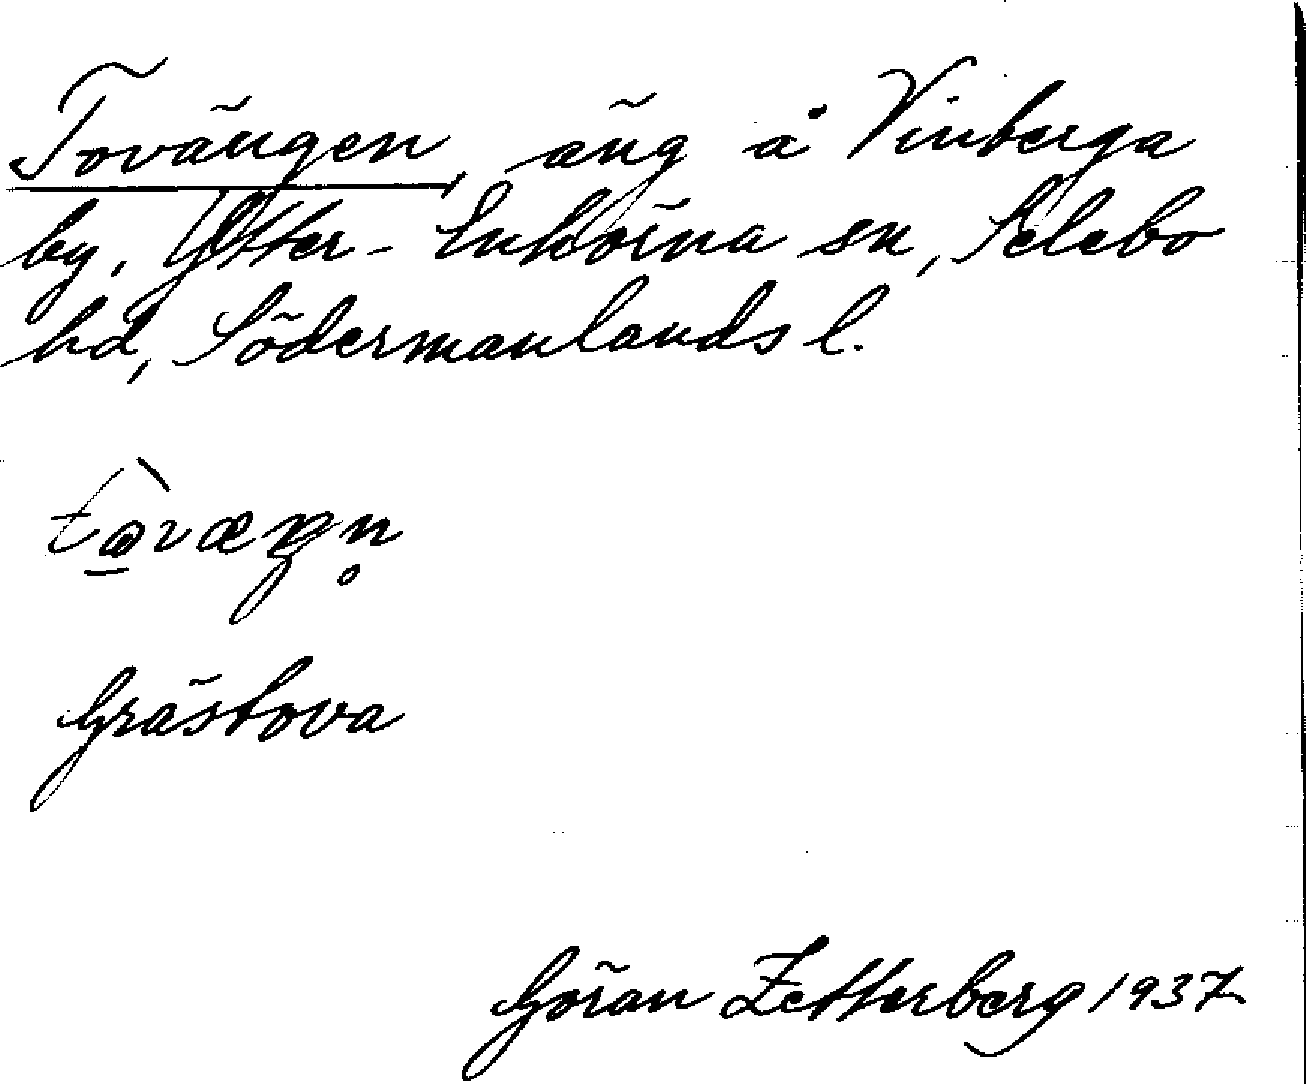 Tovängen, äng å Vinberga
by, Ytter-Enhörna sn, Selebo
hd, Södermanlands l.
Grästova
Göran Zetterberg 1937